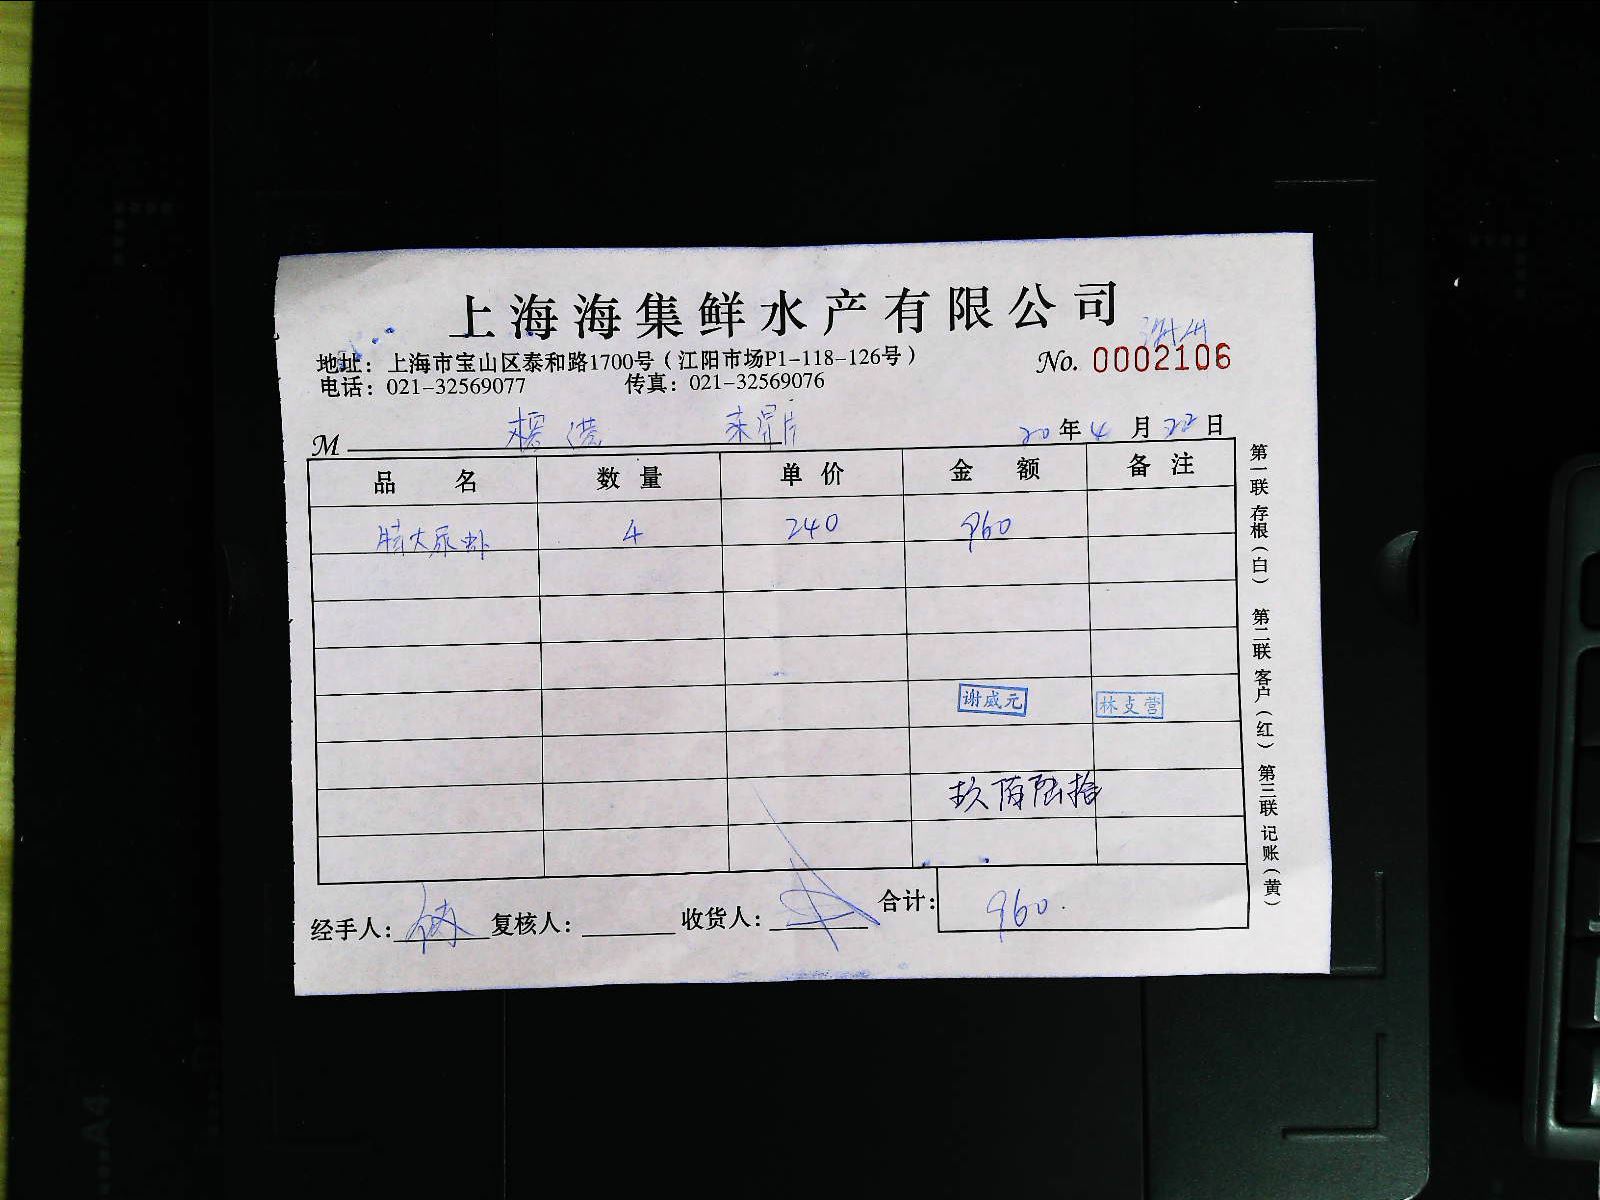 上海海集鲜水产有限公司
地址：上海市宝山区泰和路1700号（江阳市场P1-118-126号）
No. 0002106
电话：021-32569077 传真：021-32569076
M 20年4月22日
品名 数量 单价 金额 备注
特大尿虾 4 240 960
谢威元 林支营
玖佰陆拾
经手人： 复核人： 收货人： 合计： 960.
第一联 存根（白） 第二联 客户（红） 第三联 记账（黄）